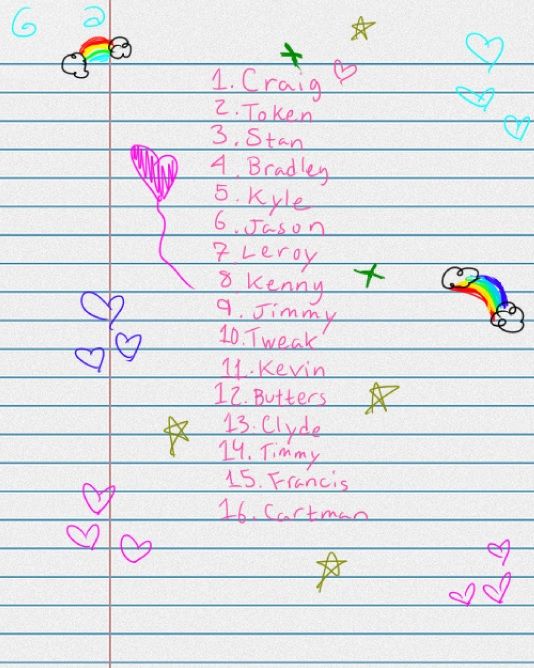 1. Craig
2. Token
3. Stan
4. Bradley
5. Kyle
6. Jason
7. Leroy
8 Kenny
9. Jimmy
10. Tweak
11. Kevin
12. Butters
13. Clyde
14. Timmy
15. Francis
16. Cartman